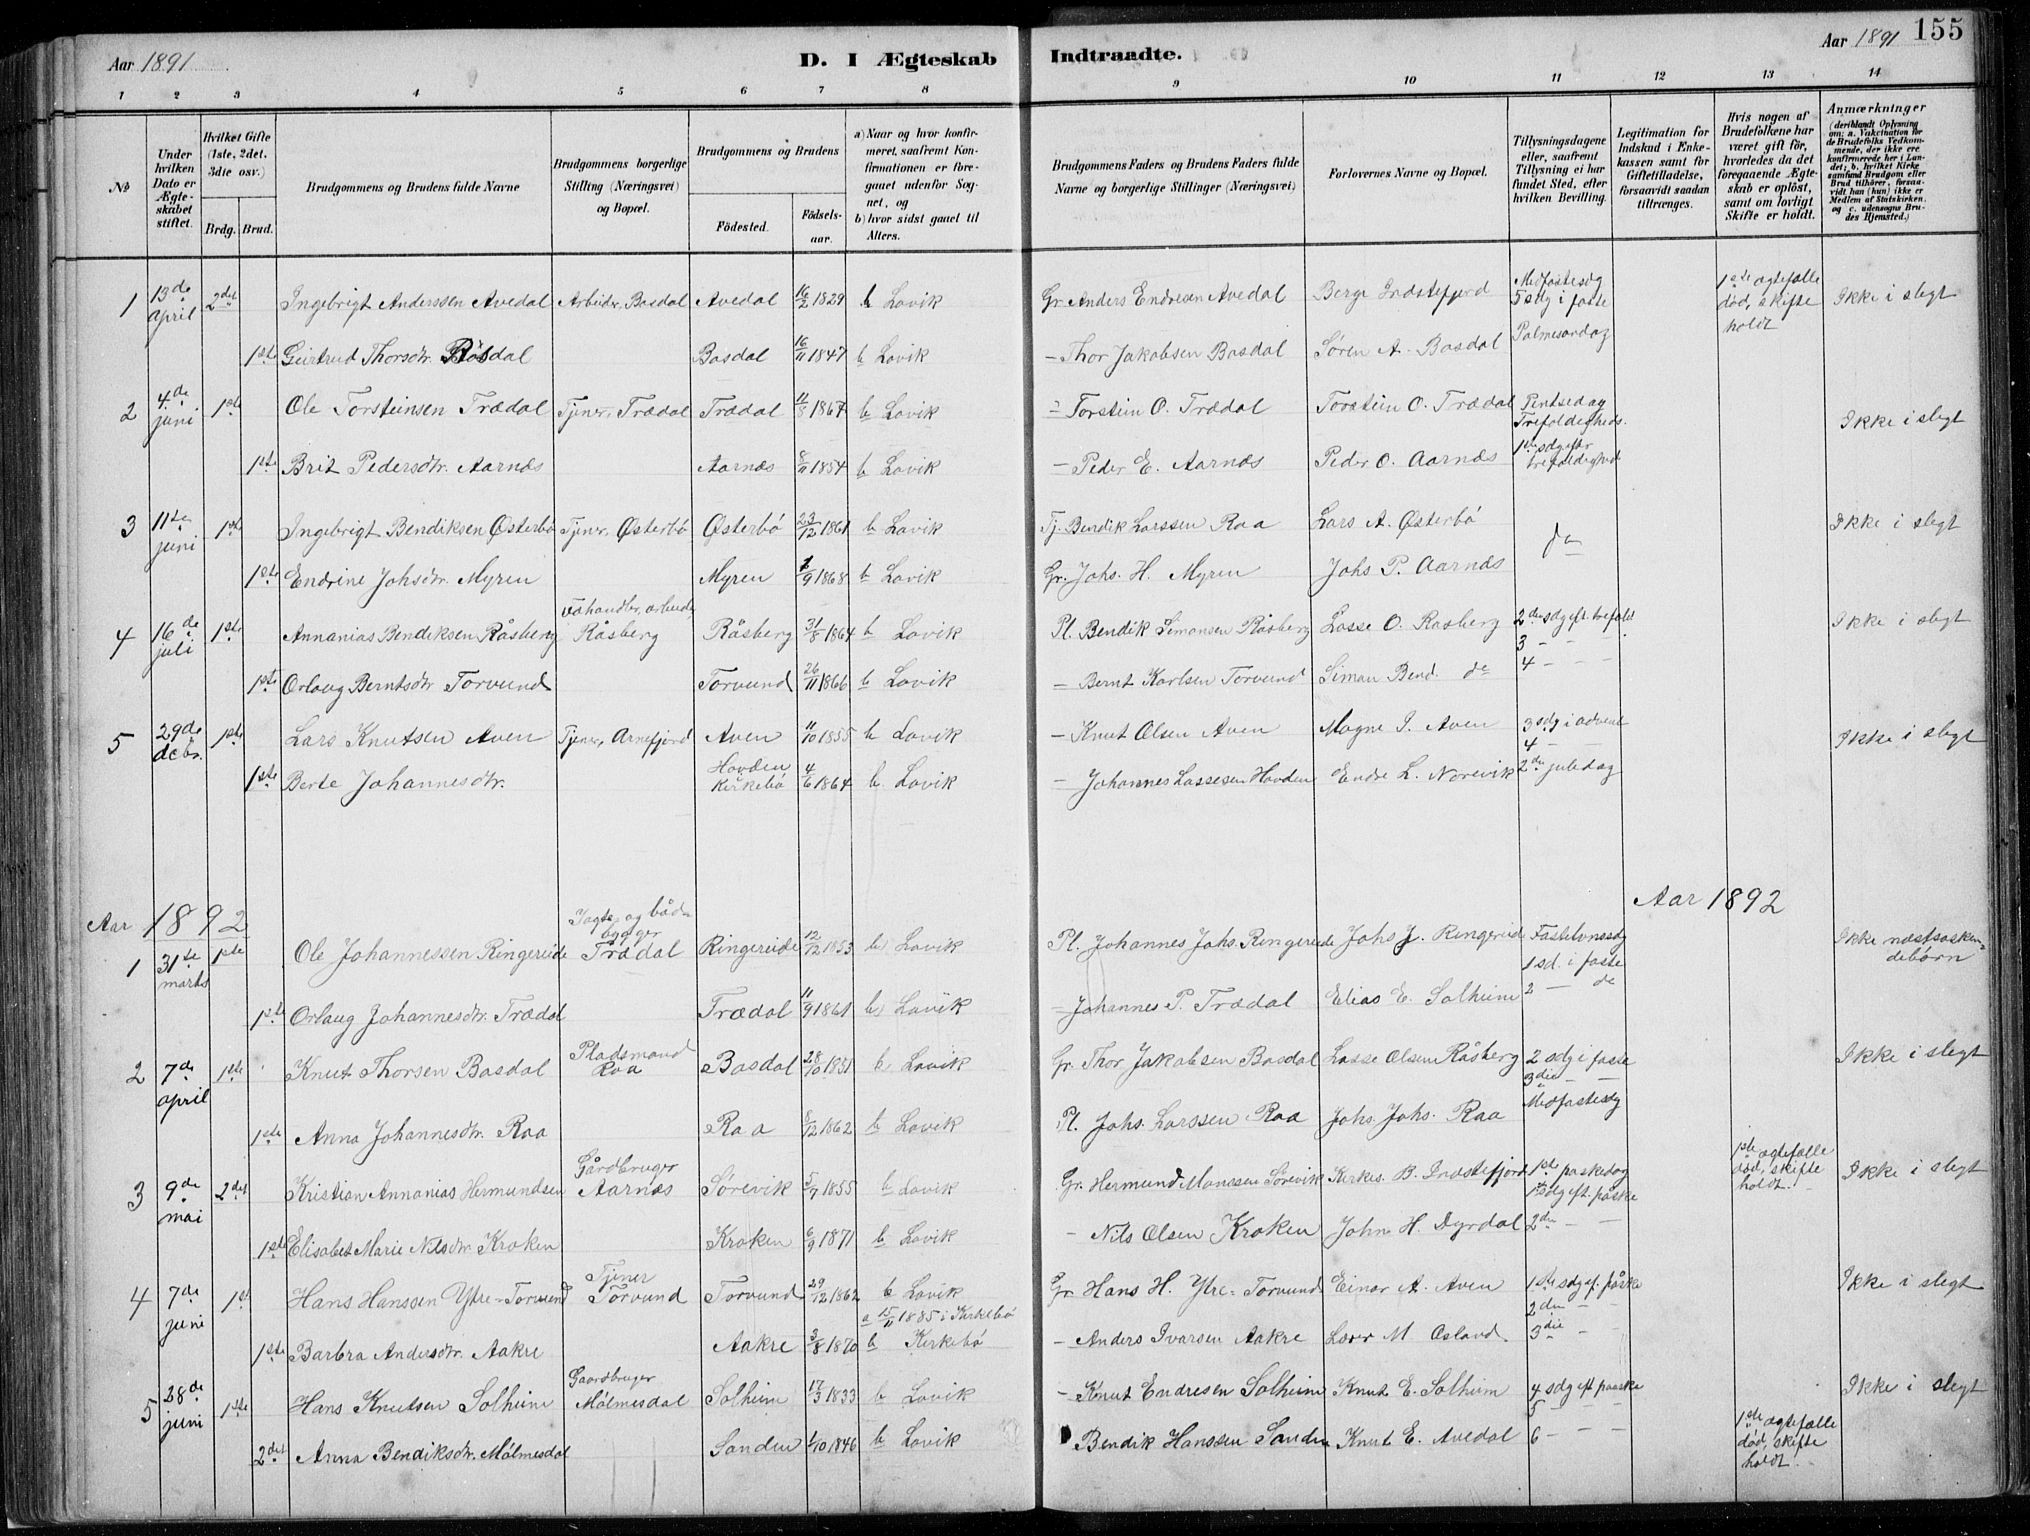 Aar 1891
D. I Ægteskab Indtraadte.
Aar 1891 155
1 2 3 4 5 6 7 8 9 10 11 12 13 14
№
Under hvilken Dato er Ægteskabet stiftet.
Hvilket Gifte (1ste, 2det, 3die osv.)
Brdg. Brud.
Brudgommens og Brudens fulde Navne
Brudgommens borgerlige Stilling (Næringsvei) og Bopæl.
Brudgommens og Brudens
Födested. Födselsaar.
a) Naar og hvor konfirmeret, saafremt Konfirmationen er foregaaet udenfor Sognet, og
b) hvor sidst gaaet til Alters.
Brudgommens Faders og Brudens Faders fulde Navne og borgerlige Stillinger (Næringsvei)
Forlovernes Navne og Bopæl.
Tillysningsdagene eller, saafremt Tillysning ei har fundet Sted, efter hvilken Bevilling.
Legitimation for Indskud i Enkekassen samt for Giftetilladelse, forsaavidt saadan tiltrænges.
Hvis nogen af Brudefolkene har været gift för, hvorledes da det foregaaende Ægteskab er oplöst, samt om lovligt Skifte er holdt.
Anmærkninger (deriblandt Oplysning om: a. Vakcination for de Brudefolks Vedkommende, der ikke ere konfirmerede her i Landet; b. hvilket Kirkesamfund Brudgom eller Brud tilhörer, forsaavidt han (hun) ikke er Medlem af Statskirken. og c. udensogns Brudes Hjemsted.)
1 13de april 2det Ingebrigt Anderssen Avedal Arbeidr, Basdal Avedal 16/2 1829 b Lavik Gr. Anders Endresen Avedal Berge Indstefjord Midfastesdg 5 sdg i faste 1ste ægtefælle død, skifte holdt Ikke i slegt
1ste Geirtrud Thorsdtr. Basdal Basdal 16/11 1847 b Lavik - Thor Jakobsen Basdal Søren A. Basdal Palmesøndag
2 4de juni 1ste Ole Torsteinsen Trædal Tjener, Trædal Trædal 11/8 1867 b Lavik - Torstein O. Trædal Torstein O. Trædal Pintsedag Trefoldigheds. Ikke i slegt
1ste Brit Pedersdtr. Aarnæs Aarnæs 8/11 1854 b Lavik - Peder E. Aarnæs Peder O. Aarnæs 1ste sdg efter trefoldighed
3 11te juni 1ste Ingebrigt Bendiksen Østerbø Tjener, Østerbø Østerbø 23/12 1861 b Lavik Tj. Bendik Larssen Raa Lars A. Østerbø do Ikke i slegt
1ste Endrine Johsdtr. Myren Myren 1/9 1868 b Lavik Gr. Johs. H. Myren Johs P. Aarnæs
4 16de juli 1ste Annanias Bendiksen Råsberg Råsberg Råsberg 31/8 1864 b Lavik Pl. Bendik Simonsen Råsberg Lasse O. Rasberg 2den sdg eft. trefold 3 - - Ikke i slegt
1ste Orlaug Berntsdtr Torvund Torvund 26/11 1866 b Lavik - Bernt Karlsen Torvund Simon Bend. do 4 - - -
5 29de decbr. 1ste Lars Knutsen Aven Tjener, Arnefjord Aven 11/10 1855 b Lavik - Knut Olsen Aven Magne I. Aven 3 sdg i advent 4 - - Ikke i slegt
1ste Berte Johannesdtr. Hovden Kirkebø 4/6 1864 b. Lavik - Johannes Lassesen Hovden Endre L. Norevik 2den juledag
Aar 1892
Aar 1892
1 31te marts 1ste Ole Johannessen Ringereide Jagte- og bådbygger Trædal Ringereide 12/12 1853 b) Lavik Pl. Johannes Johs. Ringereide Johs J. Ringereide Fastelvnssdg 1 sd. i faste Ikke næstsøskendebørn
1ste Orlaug Johannesdtr. Trædal Trædal 11/9 1861 b) Lavik - Johannes P. Trædal Elias E. Solheim 2 - do
2 7de april 1ste Knut Thorsen Basdal Pladsmand Raa Basdal 28/10 1851 b Lavik Gr. Thor Jakobsen Basdal Lasse Olsen Råsberg 2 sdg i faste 3die - - Ikke i slegt
1ste Anna Johannesdtr. Raa Raa 8/12 1862 b Lavik Pl. Johs. Larssen Raa Johs. Johs. Raa Midfastesdg
3 9de mai 2det Kristian Annanias Hermundsen Gårdbruger Aarnæs Sørevik 5/7 1855 b Lavik Gr. Hermund Monssen Sørevik Kirkes. B. Indstefjord 1ste paskedag 1 sdg eft. påske 1ste ægtefælle død, skifte holdt. Ikke i slegt
1ste Elisabet Marie Nilsdtr Kroken Kroken 6/9 1871 b Lavik - Nils Olsen Kroken John H. Dyrdal 2den - -
4 7de juni 1ste Hans Hanssen Ytre-Torvund Tjener Torvund Torvund 29/12 1862 b Lavik Gr. Hans H. Ytre-Torvund Einar A. Aven 1ste sdg ef. påske 2den - - Ikke i slegt
1ste Barbra Andersdtr. Aakre Aakre 3/8 1870 a 15/11 1885 i Kirkebø b Kirkebø - Anders Ivarsen Aakre Lærer M Osland. 3die - -
5 28de juni 1ste Hans Knutsen Solheim Gaardbruger Mølmesdal Solheim 17/3 1833 b Lavik - Knut Endresen Solheim Knut E. Solheim 4 sdg eft paaske 5 - - - Ikke i slegt
2det Anna Bendiksdtr. Mølmesdal Sanden 1/10 1846 b Lavik Bendik Hanssen Sanden Knut E. Avedal 6 - - - 1ste ægtefælle død, skifte holdt.